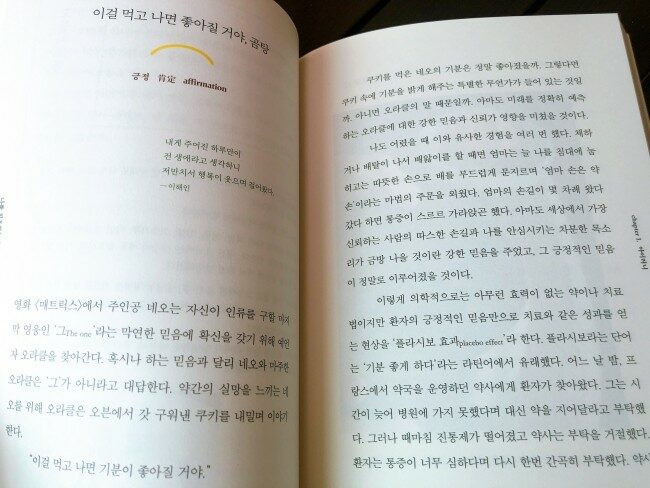 이걸 먹고 나면 좋아질 거야, 곰탕
긍정 肯定 affirmation
내게 주어진 하루만이
전 생애라고 생각하니
저만치서 행복이 웃으며 걸어왔다.
—이해인
영화 〈매트릭스〉에서 주인공 네오는 자신이 인류를 구할 마지
막 영웅인 '그The one'라는 막연한 믿음에 확신을 갖기 위해 예언
자 오라클을 찾아간다. 혹시나 하는 믿음과 달리 네오와 마주한
오라클은 '그'가 아니라고 대답한다. 약간의 실망을 느끼는 네
오를 위해 오라클은 오븐에서 갓 구워낸 쿠키를 내밀며 이야기
한다.
"이걸 먹고 나면 기분이 좋아질 거야."
쿠키를 먹은 네오의 기분은 정말 좋아졌을까. 그렇다면
쿠키 속에 기분을 밝게 해주는 특별한 무언가가 들어 있는 것일
까. 아니면 오라클의 말 때문일까. 아마도 미래를 정확히 예측
하는 오라클에 대한 강한 믿음과 신뢰가 영향을 미쳤을 것이다.
나도 어렸을 때 이와 유사한 경험을 여러 번 했다. 체하
거나 배탈이 나서 배앓이를 할 때면 엄마는 늘 나를 침대에 눕
히고는 따뜻한 손으로 배를 부드럽게 문지르며 '엄마 손은 약
손'이라는 마법의 주문을 외웠다. 엄마의 손길이 몇 차례 왔다
갔다 하면 통증이 스르르 가라앉곤 했다. 아마도 세상에서 가장
신뢰하는 사람의 따스한 손길과 나를 안심시키는 차분한 목소
리가 금방 나을 것이란 강한 믿음을 주었고, 그 긍정적인 믿음
이 정말로 이루어졌을 것이다.
이렇게 의학적으로는 아무런 효력이 없는 약이나 치료
법이지만 환자의 긍정적인 믿음만으로 치료와 같은 성과를 얻
는 현상을 '플라시보 효과placebo effect'라 한다. 플라시보라는 단어
는 '기분 좋게 하다'라는 라틴어에서 유래했다. 어느 날 밤, 프
랑스에서 약국을 운영하던 약사에게 환자가 찾아왔다. 그는 시
간이 늦어 병원에 가지 못했다며 대신 약을 지어달라고 부탁했
다. 그러나 때마침 진통제가 떨어졌고 약사는 부탁을 거절했다.
환자는 통증이 너무 심하다며 다시 한번 간곡히 부탁했다. 약사
chapter 1.